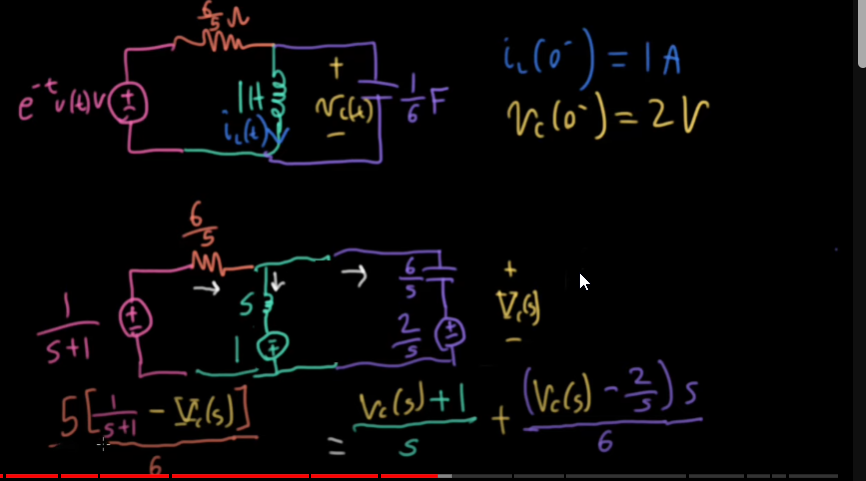 6/5 Ω
e^-t u(t) V
+
-
1H
i_L(t)
+
v_c(t)
-
1/6 F
i_L(0^-) = 1 A
v_c(0^-) = 2 V
6/5
→
↓
→
1/(s+1)
+
-
s
1
6/s
2/s
+
V_c(s)
-
5[1/(s+1) - V_c(s)]/6 = (V_c(s) + 1)/s + (V_c(s) - 2/s)s/6